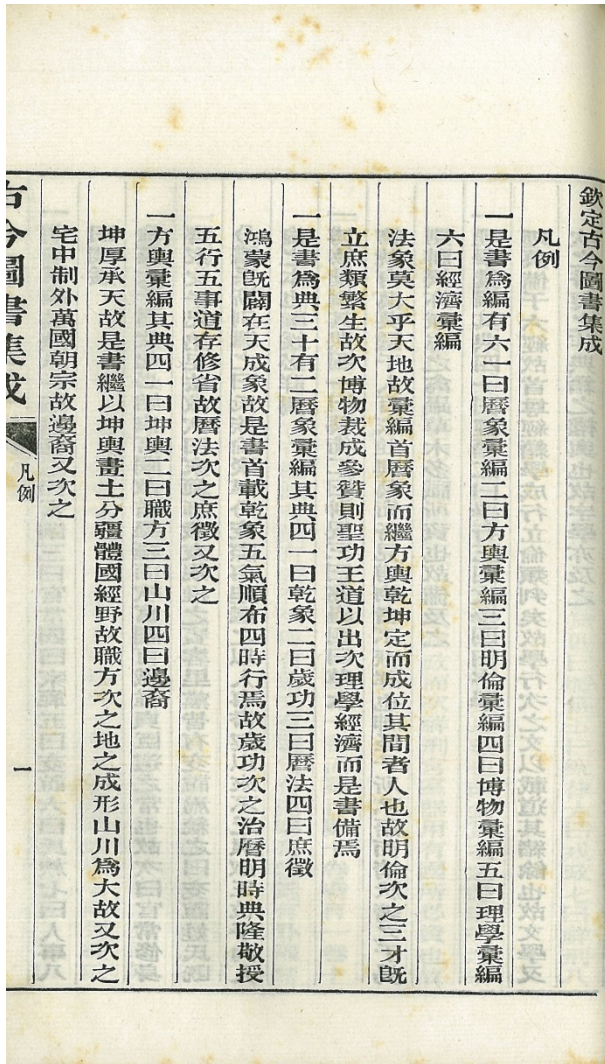 欽定古今圖書集成
凡例
一是書爲編有六一曰曆象彙編二曰方輿彙編三曰明倫彙編四曰博物彙編五曰理學彙編
六曰經濟彙編
法象莫大乎天地故彙編首曆象而繼方輿乾坤定而成位其間者人也故明倫次之三才旣
立庶類繁生故次博物裁成參贊則聖功王道以出次理學經濟而是書備焉
一是書爲典三十有二曆象彙編其典四一曰乾象二曰歲功三曰曆法四曰庶徵
鴻蒙旣闢在天成象故是書首載乾象五氣順布四時行焉故歲功次之治曆明時典隆敬授
五行五事道存修省故曆法次之庶徵又次之
一方輿彙編其典四一曰坤輿二曰職方三曰山川四曰邊裔
坤厚承天故是書繼以坤輿畫土分疆體國經野故職方次之地之成形山川爲大故又次之
宅中制外萬國朝宗故邊裔又次之
古今圖書集成
凡例
一